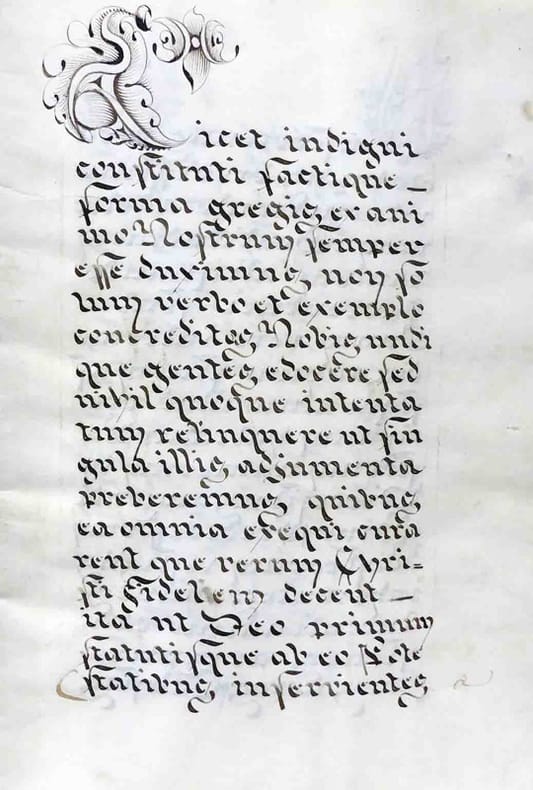 Licet indigni
constituti factique
forma gregis ex ani
mo Nostrum semper
esse duximus non so
lum verbo et exemplo
concreditas Nobis undi
que gentes edocere sed
nihil quoque intenta
tum relinquere ut sin
gula illis adjumenta
preberemus quibus
ea omnia exequi cura
rent que verum Chri=
sti fidelem decent
ita ut Deo primum
statutisque ab eo Pote
statibus inservientes